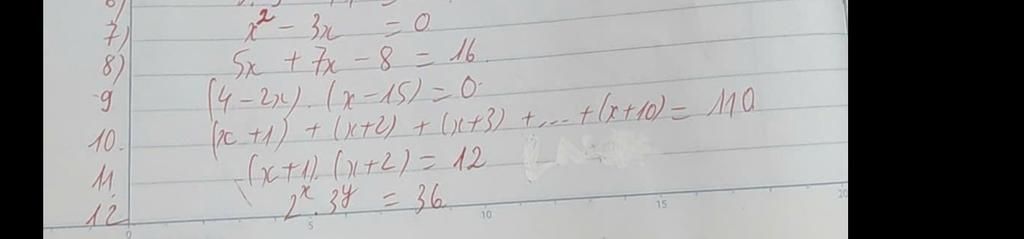 7) x² - 3x = 0
8) 5x + 7x - 8 = 16
9 (4 - 2x) . (x - 15) = 0
10. (x + 1) + (x + 2) + (x + 3) + ... + (x + 10) = 110
11. (x + 1) . (x + 2) = 12
12 2ˣ . 3ʸ = 36
0 5 10 15 20